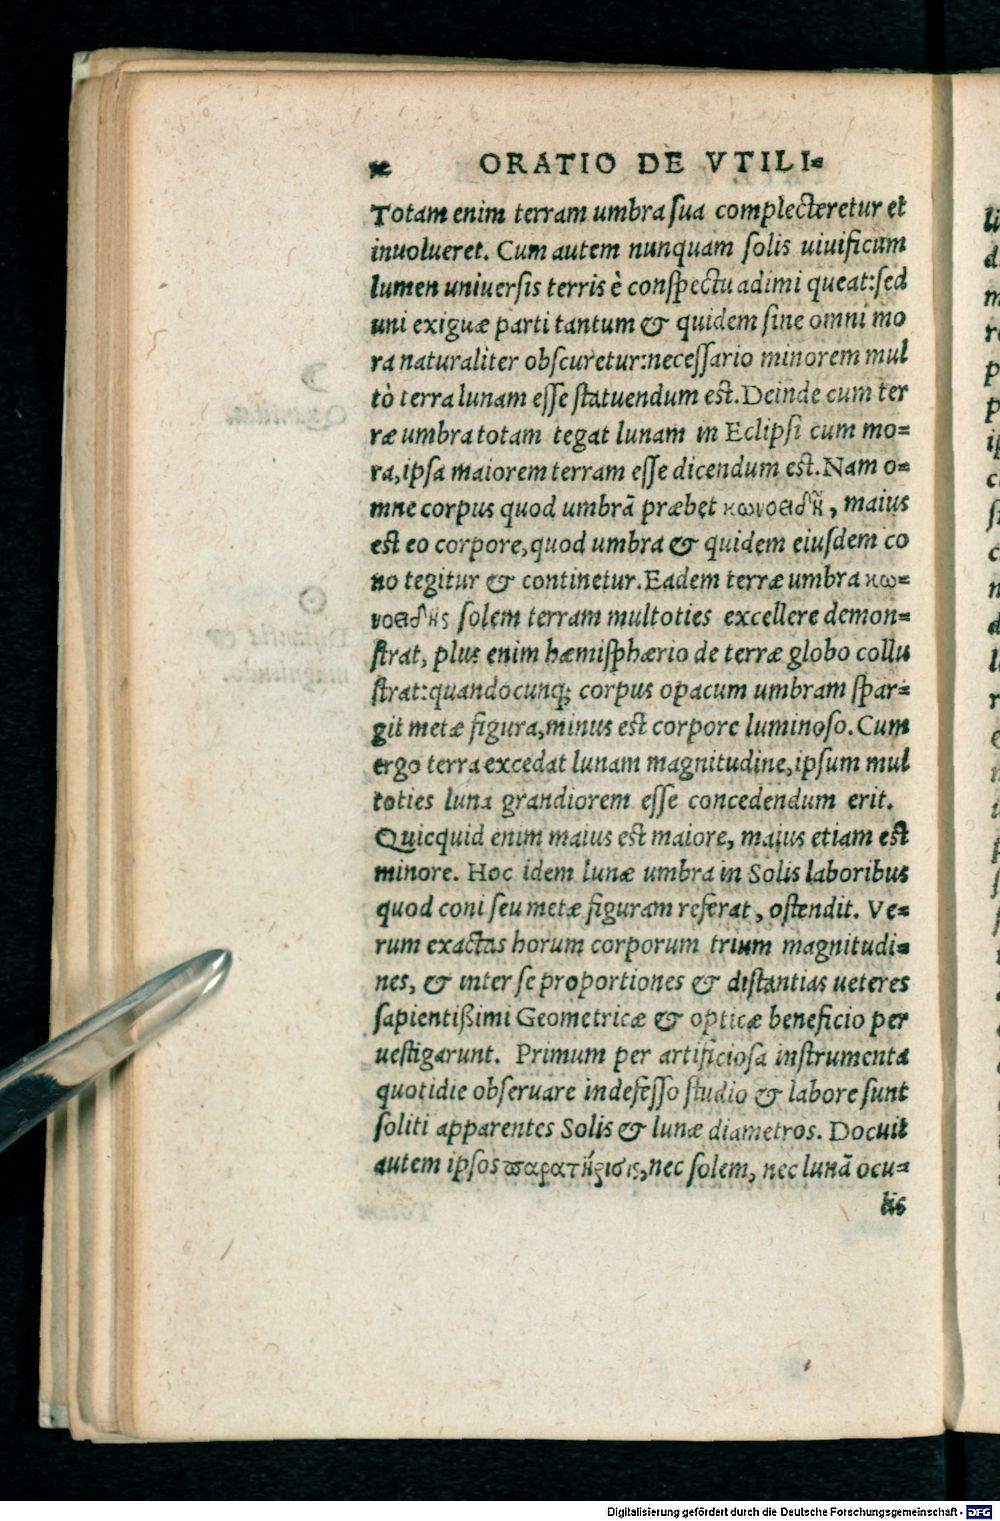 ORATIO DE VTILI-
Totam enim terram umbra ſua complecteretur et
inuolueret. Cum autem nunquam ſolis uiuificum
lumen uniuerſis terris è conſpectu adimi queat: ſed
uni exiguæ parti tantum & quidem ſine omni mo
ra naturaliter obſcuretur: neceſſario minorem mul
tò terra lunam eſſe ſtatuendum eſt. Deinde cum ter
ræ umbra totam tegat lunam in Eclipſi cum mo-
ra, ipſa maiorem terram eſſe dicendum eſt. Nam o-
mne corpus quod umbrã præbet κωνοειδῆ, maius
eſt eo corpore, quod umbra & quidem eiuſdem co
no tegitur & continetur. Eadem terræ umbra κω-
νοειδὴς ſolem terram multoties excellere demon-
ſtrat, plus enim hæmiſphærio de terræ globo collu
ſtrat: quandocunq; corpus opacum umbram ſpar-
git metæ figura, minus eſt corpore luminoſo. Cum
ergo terra excedat lunam magnitudine, ipſum mul
toties luna grandiorem eſſe concedendum erit.
Quicquid enim maius eſt maiore, maius etiam eſt
minore. Hoc idem lunæ umbra in Solis laboribus
quod coni ſeu metæ figuram referat, oſtendit. Ve-
rum exactas horum corporum trium magnitudi-
nes, & inter ſe proportiones & diſtantias ueteres
ſapientißimi Geometricæ & opticæ beneficio per
ueſtigarunt. Primum per artificioſa inſtrumenta
quotidie obſeruare indefeſſo ſtudio & labore ſunt
ſoliti apparentes Solis & lunæ diametros. Docuit
autem ipſos παρατήρισις, nec ſolem, nec lunã ocu-
lis
Digitalisierung gefördert durch die Deutsche Forschungsgemeinschaft - DFG